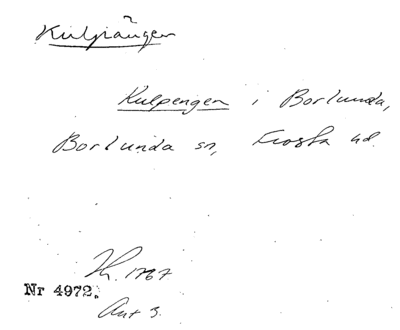 Kulpängen
Kulpengen i Borlunda,
Borlunda sn, Frosta hd.
1767
Nr 4972.
Akt 3.